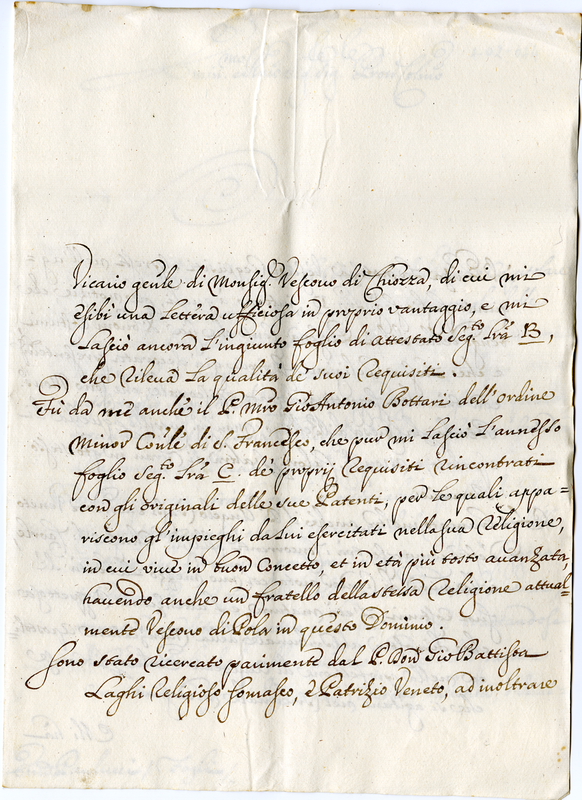 Vicario gen'le di Monsig.r Vescovo di Chiozza, di cui mi
esibì una Lettera ufficiosa in proprio vantaggio, e mi
Lasciò ancora L'ingiunto foglio di attestato Seg.to Lrã B,
che rileva La qualità de suoi Requisiti.
Fù da me anche il P. Mro Gio Antonio Bottari dell'ordine
Minor Con'le di S. Francesco, che pur mi Lasciò L'annesso
foglio Seg.to Lrã C. de proprij Requisiti rincontrati
con gli originali delle sue Patenti, per le quali appa=
riscono gl'impieghi da Lui esercitati nella sua Religione,
in cui vive in buon Concetto, et in età più tosto avanzata,
havendo anche un fratello della stessa Religione attual=
mente Vescovo di Pola in questo Dominio.
Sono stato ricercato parimente dal P. Don Gio Battista
Laghi Religioso Somasco, è Patrizio Veneto, ad inoltrare